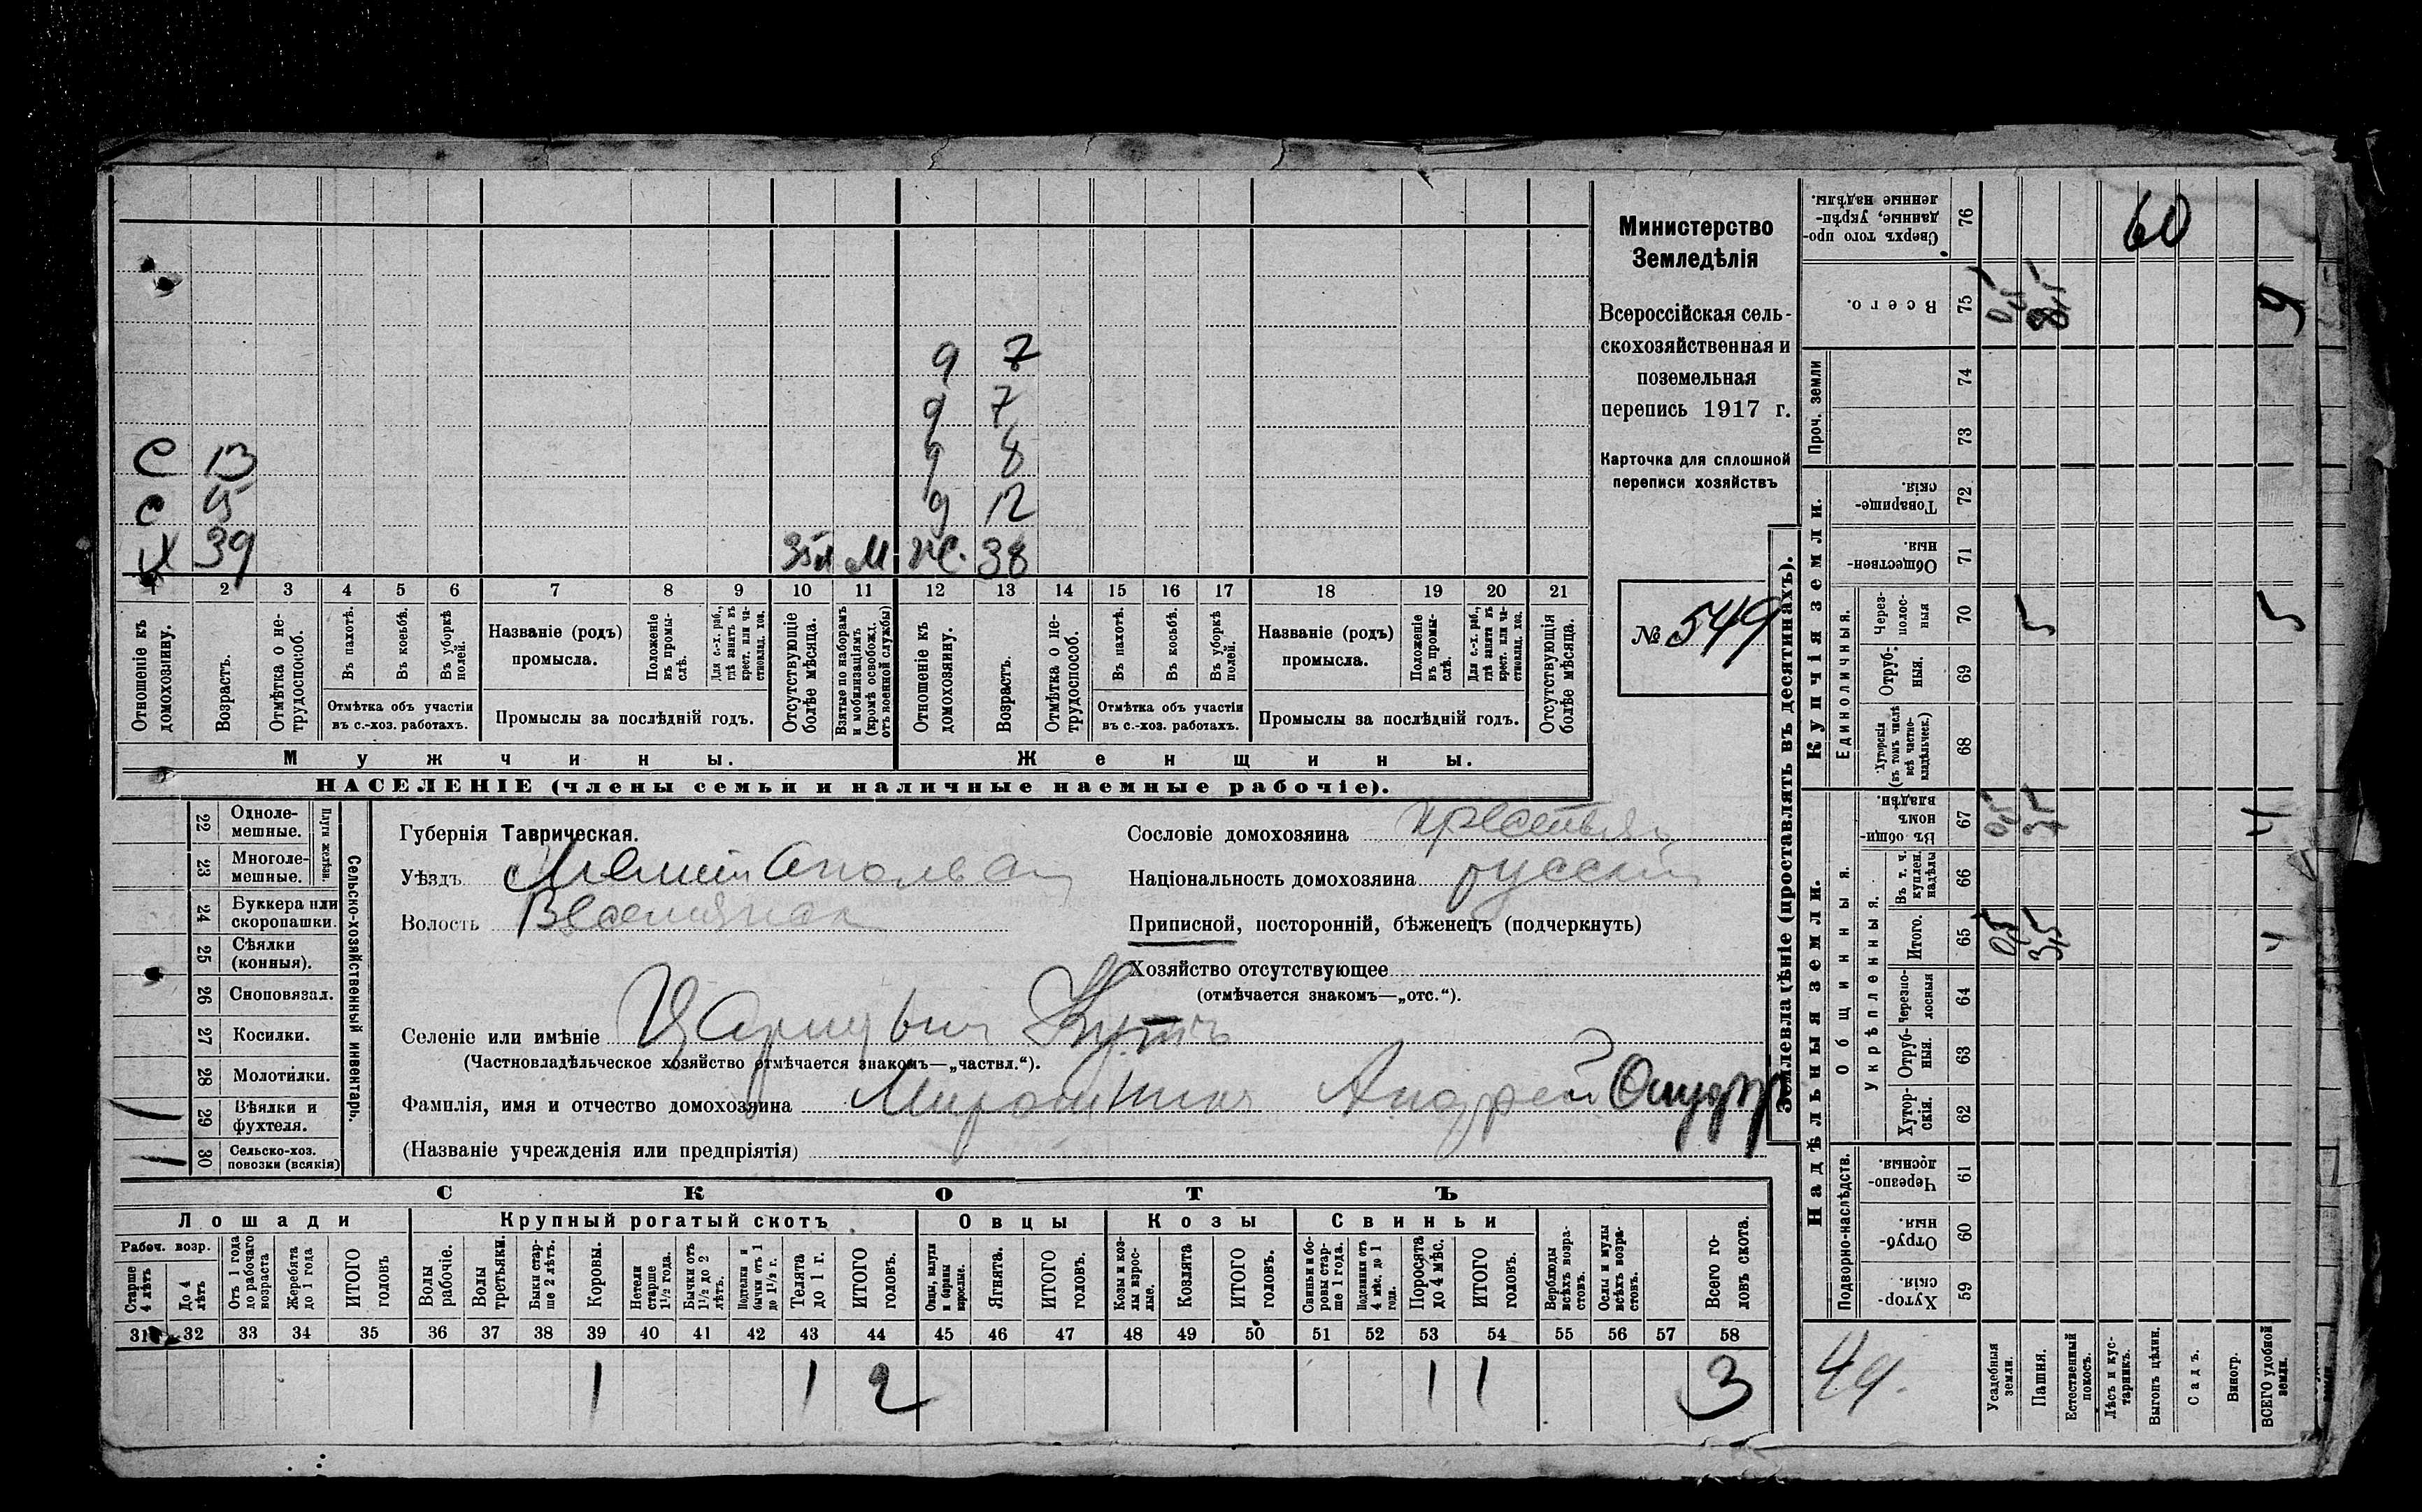 Министерство
Земледѣлія
Всероссійская сель-
скохозяйственная и
поземельная
перепись 1917 г.
Карточка для сплошной
переписи хозяйствъ
№ 549
9 7
9 7
С 13 9 8
С 15 9 12
Х 39 М Ж. 38
1 2 3 4 5 6 7 8 9 10 11 12 13 14 15 16 17 18 19 20 21
Отношеніе къ домохозяину.
Возрастъ.
Отмѣтка о не-трудоспособ.
Въ пахотѣ.
Въ косьбѣ.
Въ уборкѣ полей.
Отмѣтка объ участіи
въ с.-хоз. работахъ.
Названіе (родъ)
промысла.
Положеніе въ промы-слѣ.
Для с.-х. раб., гдѣ занятъ въ крест. или ча-стновлад. хоз.
Промыслы за послѣдній годъ.
Отсутствующіе болѣе мѣсяца.
Взятые по наборамъ и мобилизаціямъ (кромѣ освобожд. отъ военной службы)
Отношеніе къ домохозяину.
Возрастъ.
Отмѣтка о не-трудоспособ.
Въ пахотѣ.
Въ косьбѣ.
Въ уборкѣ полей.
Отмѣтка объ участіи
въ с.-хоз. работахъ.
Названіе (родъ)
промысла.
Положеніе въ промы-слѣ.
Для с.-х. раб., гдѣ занята въ крест. или ча-стновлад. хоз.
Промыслы за послѣдній годъ.
Отсутствующія болѣе мѣсяца.
Мужчины. Женщины.
НАСЕЛЕНІЕ (члены семьи и наличные наемные рабочіе).
Сельско-хозяйственный инвентарь.
Плуги желѣзн.
22 Одноле-мешные.
23 Многоле-мешные.
24 Буккера или скоропашки.
25 Сѣялки (конныя).
26 Сноповязал.
27 Косилки.
28 Молотилки.
29 Вѣялки и фухтеля.
30 Сельско-хоз. повозки (всякія)
Губернія Таврическая.
Уѣздъ Мелитопольск
Волость Веселянск
Сословіе домохозяина крестьян
Національность домохозяина русскій
Приписной, посторонній, бѣженецъ (подчеркнуть)
Хозяйство отсутствующее
(отмѣчается знакомъ—„отс.“).
Селеніе или имѣніе Царицынъ Кутъ
(Частновладѣльческое хозяйство отмѣчается знакомъ—„частвл.“).
Фамилія, имя и отчество домохозяина Мирошник Андрей
(Названіе учрежденія или предпріятія)
СКОТЪ
Лошади Крупный рогатый скотъ Овцы Козы Свиньи
Рабоч. возр.
Старше 4 лѣтъ
До 4 лѣтъ
Отъ 1 года до рабочаго возраста
Жеребята до 1 года
ИТОГО головъ
Волы рабочіе.
Волы третьяки.
Быки стар-ше 2 лѣтъ.
Коровы.
Нетели старше 1½ года.
Бычки отъ 1½ до 2 лѣтъ.
Подтелки и бычки отъ 1 до 1½ г.
Телята до 1 г.
ИТОГО головъ.
Овцы, валухи и бараны взрослые.
Ягнята.
ИТОГО головъ.
Козы и коз-лы взрос-лые.
Козлята
ИТОГО головъ.
Свиньи и бо-ровы стар-ше 1 года.
Подсвинки отъ 4 мѣс. до 1 года.
Поросята до 4 мѣс.
ИТОГО головъ.
Верблюды всѣхъ возра-стовъ.
Ослы и мулы всѣхъ возра-стовъ.
Всего го-ловъ скота.
31 32 33 34 35 36 37 38 39 40 41 42 43 44 45 46 47 48 49 50 51 52 53 54 55 56 57 58
1 1 2 1 1 3
Землевладѣніе (проставлять въ десятинахъ).
Надѣльныя земли.
Купчія земли.
Проч. земли
Подворно-наслѣдств.
Общинныя.
Укрѣпленныя.
Единоличныя.
59 Хутор-скія.
60 Отруб-ныя.
61 Черезпо-лосныя.
62 Хутор-скія.
63 Отруб-ныя.
64 Черезпо-лосныя
65 Итого. 0,5 3,5 4
66 Въ т. ч. куплен. надѣлы
67 Въ общин-номъ владѣн. 0,5 3,5 4
68 Хуторскія (въ томъ числѣ всѣ частно-владѣльческ.)
69 Отруб-ныя.
70 Через-полос-ныя 5 5
71 Обществен-ныя.
72 Товарище-скія.
73
74
75 Всего. 0,5 8,5 9
76 Сверхъ того про-данные, укрѣп-ленные надѣлы.
60
44.
Усадебныя земли.
Пашня.
Естественный покосъ.
Лѣсъ и кус-тарникъ.
Выгонъ цѣлин.
Садъ.
Виногр.
ВСЕГО удобной земли.